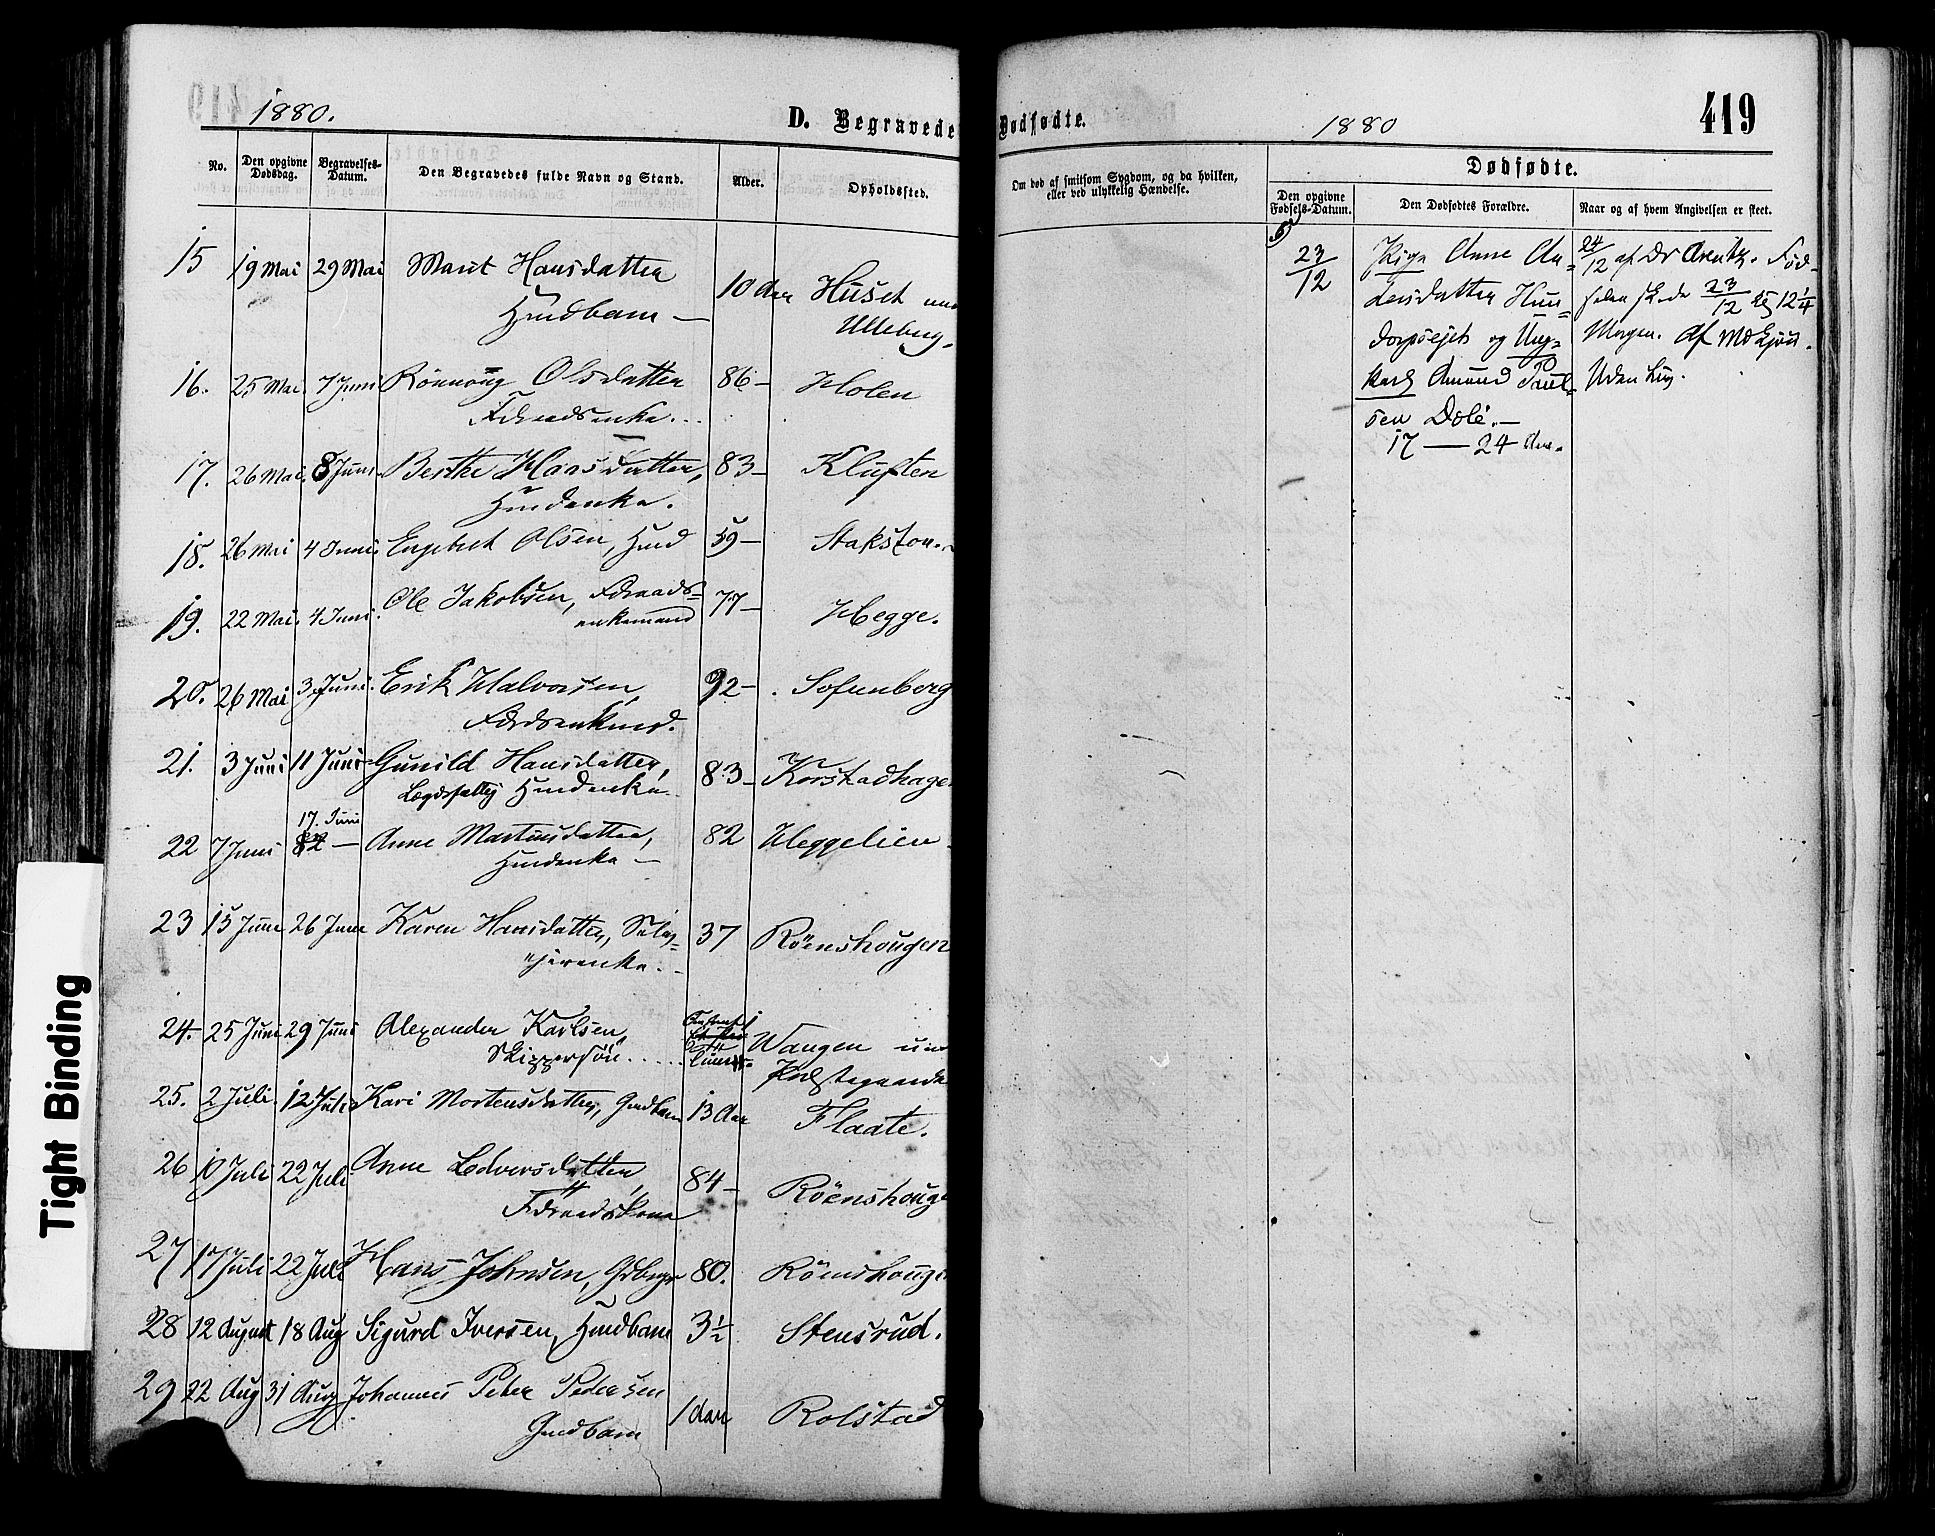 1880.
D. Begravede
No.
Den opgivne Dødsdag.
Begravelses-Datum.
Den Begravedes fulde Navn og Stand.
Alder.
Opholdssted.
15 19 Mai 29 Mai Marit Hansdatter 10 Aar Huset
Husdbarn — Ulleberg.
16. 25 Mai 7 Juni Rönnoug Olsdatter 86 — Holen
Föraadsenke.
17. 26 Mai 8 Juni Berthe Hansdatter, 83 — Kluften
Husdenke.
18. 26 Mai 4 Juni Engebret Olsen, Husd 59 — Stakston
19. 22 Mai 4 Juni Ole Jakobsen, Föraads- 77 — Hegge.
enkemand
20. 26 Mai 3 Juni Erik Halvorsen, 92 — Sofienberg
Fördsenkmd.
21. 3 Juni 11 Juni Gunild Hansdatter, 83 — Korstadhagen
Lægdsfattig Husdenke
17. Juni
22 7 Juni 12 — Anne Martinsdatter, 82 Heggelien
Husdenke —
23 15 Juni 26 Juni Karen Hansdatter, 37 Röenshougen
24. 25 Juni 29 Juni Alexander Karlsen, Wangen
Skippersön
25. 2 Juli 12 Juli Kari Mortensdatter, Gmdbarn 13 Aar Flaate.
26 10 Juli 22 Juli Anne Ledversdatter, 84 — Röenshouge
Föraadskone
27 17 Juli 22 Juli Hans Johnsen, Gdbrgr 80. Röenshouge
28 12 August 18 Aug Sigurd Iversen, Husdbarn 3½ Stensrud.
29 22 Aug 31 Aug Johannes Peter Pedersen 1 Aar Rolstad
Gmdbarn
Dødfødte.
1880
419
Om død af smitsom Sygdom, og da hvilken,
eller ved ulykkelig Hændelse.
Dødfødte.
Den opgivne Fødsels-Datum.
Den Dødfødtes Forældre.
Naar og af hvem Angivelsen er skeet.
23/12 Pige Anne An- 24/12 af Dr Arentz. Föd-
dersdatter Hun- selen skede 23/12 Kl 12¼
dorpsejet og Ung- Morgen. Af
karl Amund Paul- Uden
sen Döle. —
17 — 24 Aar.
Tight Binding